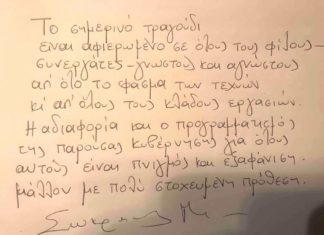 Το σημερινό τραγούδι
είναι αφιερωμένο σε όλους τους φίλους -
συνεργάτες - γνωστούς και αγνώστους
απ' όλο το φάσμα των τεχνών
κι απ' όλους τους κλάδους εργασιών.
Η αδιαφορία και ο προγραμματισμός
της παρούσας κυβέρνησης για όλους
αυτούς είναι πνιγμός και εξαφάνιση.
μάλλον με πολύ στοχευμένη πρόθεση.